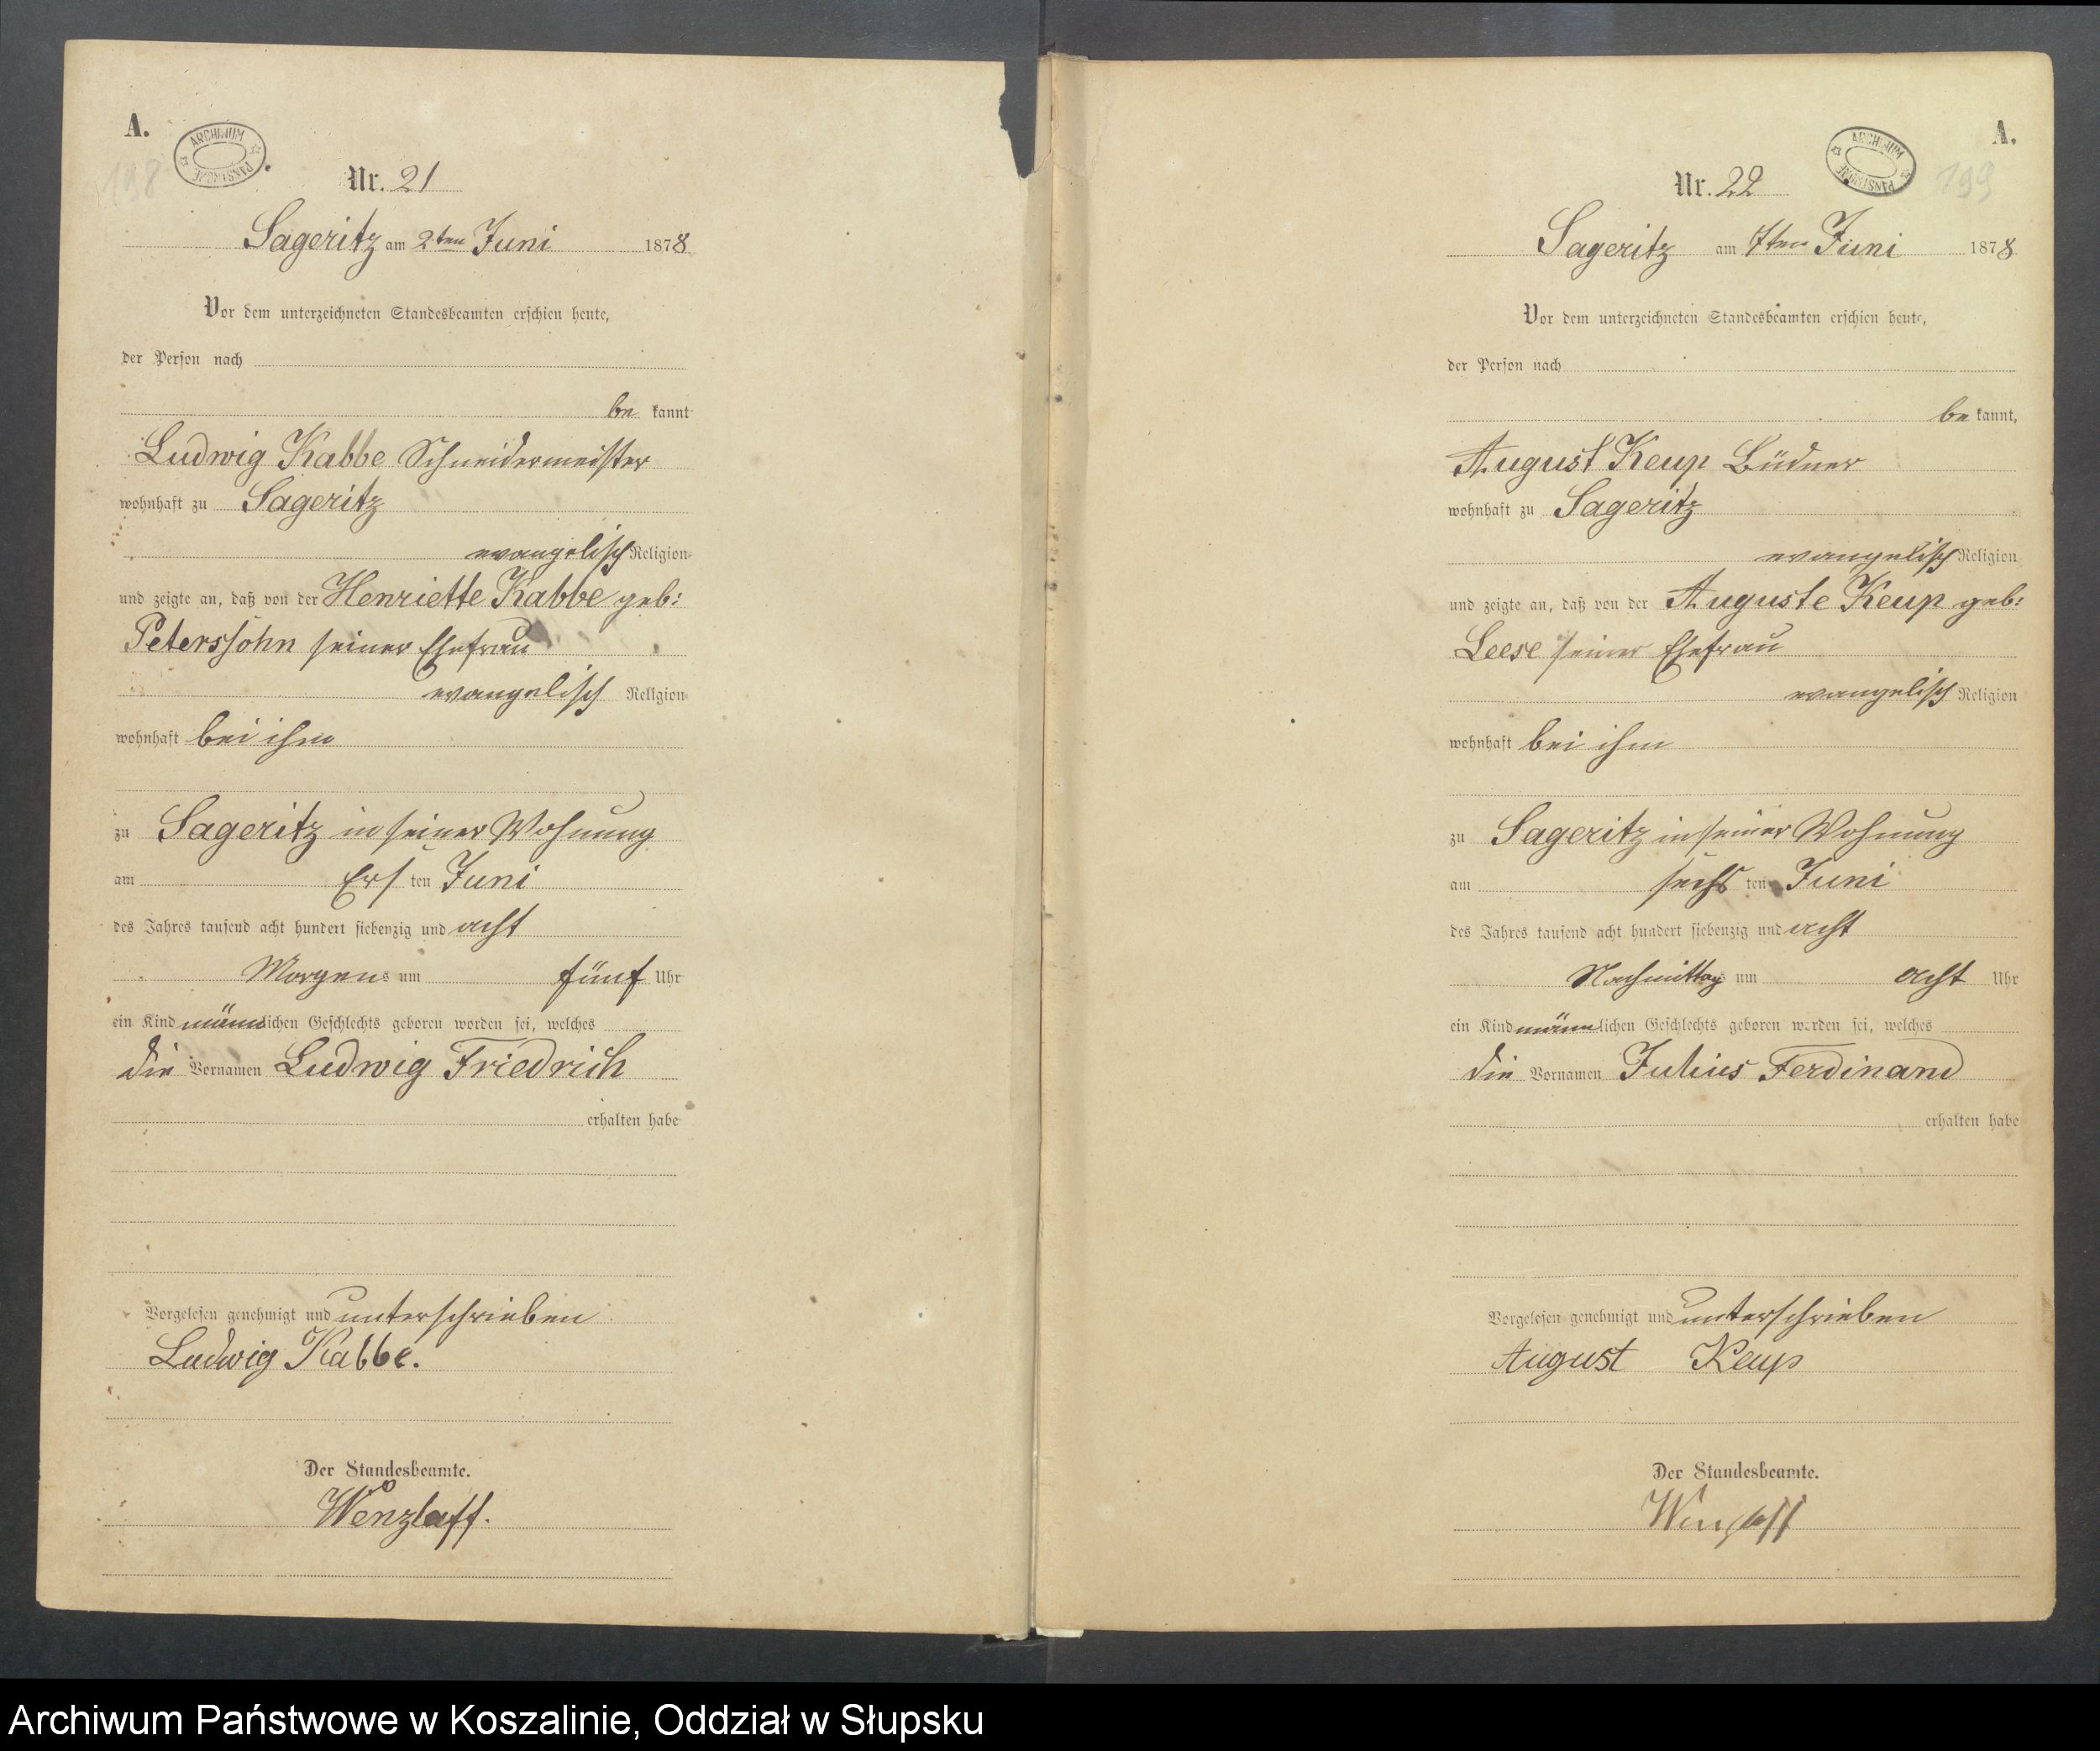 A.
ARCHIWUM PAŃSTWOWE
198
Nr. 21
Sageritz am 2ten Juni 1878
Vor dem unterzeichneten Standesbeamten erschien heute,
der Person nach
be kannt
Ludwig Kabbe Schneidermeister
wohnhaft zu Sageritz
evangelisch Religion
und zeigte an, daß von der Henriette Kabbe geb:
Peterssohn seiner Ehefrau
evangelisch Religion
wohnhaft bei ihm
zu Sageritz in seiner Wohnung
am Ers ten Juni
des Jahres tausend acht hundert siebenzig und acht
Morgens um fünf Uhr
ein Kind männlichen Geschlechts geboren worden sei, welches
die Vornamen Ludwig Friedrich
erhalten habe
Vorgelesen genehmigt und unterschrieben
Ludwig Kabbe.
Der Standesbeamte.
Wenzlaff.
A.
ARCHIWUM PAŃSTWOWE
199
Nr. 22
Sageritz am 7ten Juni 1878
Vor dem unterzeichneten Standesbeamten erschien heute,
der Person nach
be kannt,
August Keup Büdner
wohnhaft zu Sageritz
evangelisch Religion
und zeigte an, daß von der Auguste Keup geb:
Leese seiner Ehefrau
evangelisch Religion
wohnhaft bei ihm
zu Sageritz in seiner Wohnung
am sechs ten Juni
des Jahres tausend acht hundert siebenzig und acht
Nachmittags um acht Uhr
ein Kind männlichen Geschlechts geboren worden sei, welches
die Vornamen Julius Ferdinand
erhalten habe
Vorgelesen genehmigt und unterschrieben
August Keup
Der Standesbeamte.
Wenzlaff
Archiwum Państwowe w Koszalinie, Oddział w Słupsku